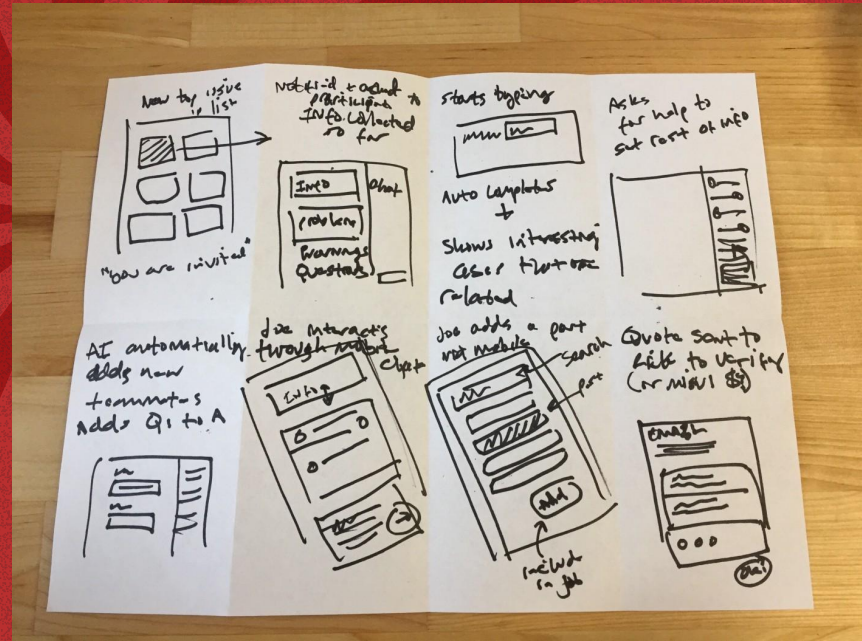 New top issue
in list
"You are invited"
Notified + asked to
participate
Info collected
so far
Info
Problem
Warnings
Questions
Chat
starts typing
Auto completes
+
Shows interesting
cases that are
related
Asks
for help to
get rest of info
AI automatically
adds new
teammates
Adds Qs to A
Joe interacts
through mobile
Info
Joe adds a part
search
part
Add
include
in job
Quote sent to
to verify
Email